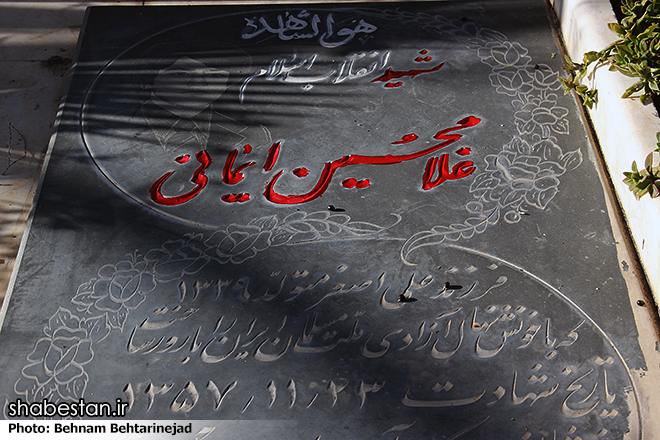 هوالشاهد
شهید انقلاب اسلام
غلامحسین ایمانی
فرزند علی اصغر متولد ۱۳۳۹
که با خونش نهال آزادی ملت مسلمان ایران را بارور ساخت
تاریخ شهادت ۱۳۵۷/۱۱/۲۳
shabestan.ir
Photo: Behnam Behtarinejad